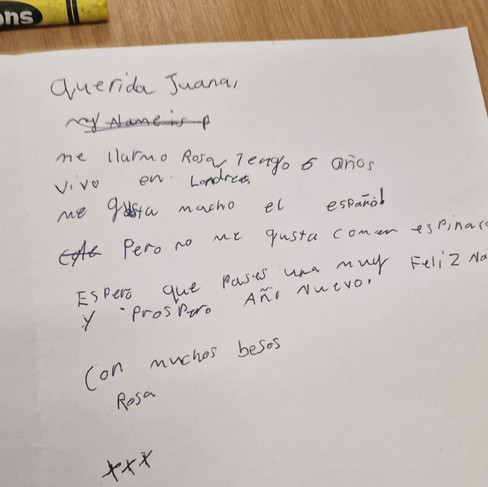 ons
Querida Juana,
my Name is p
me llamo Rosa Tengo 6 años
vivo en Londres
me gusta mucho el español
Pero no me gusta comer espinac
Espero que Pases una muy FeliZ Na
y Prospero Año Nuevo.
Con muchos besos
Rosa
xxx